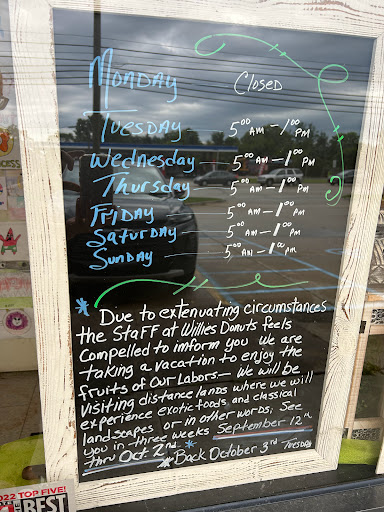 Monday Closed
Tuesday 5⁰⁰ AM - 1⁰⁰ PM
Wednesday 5⁰⁰ AM - 1⁰⁰ PM
Thursday 5⁰⁰ AM - 1⁰⁰ PM
Friday 5⁰⁰ AM - 1⁰⁰ PM
Saturday 5⁰⁰ AM - 1⁰⁰ PM
Sunday 5⁰⁰ AM - 1⁰⁰ PM
* Due to extenuating circumstances
the Staff at Willies Donuts feels
Compelled to imform you we are
taking a vacation to enjoy the
fruits of Our Labors — We will be
Visiting distance lands where we will
experience exotic foods, and classical
landscapes or in other words; See
you in three weeks September 12th
thru Oct 2nd. *
* Back October 3rd Tuesday
2022 TOP FIVE!
BEST